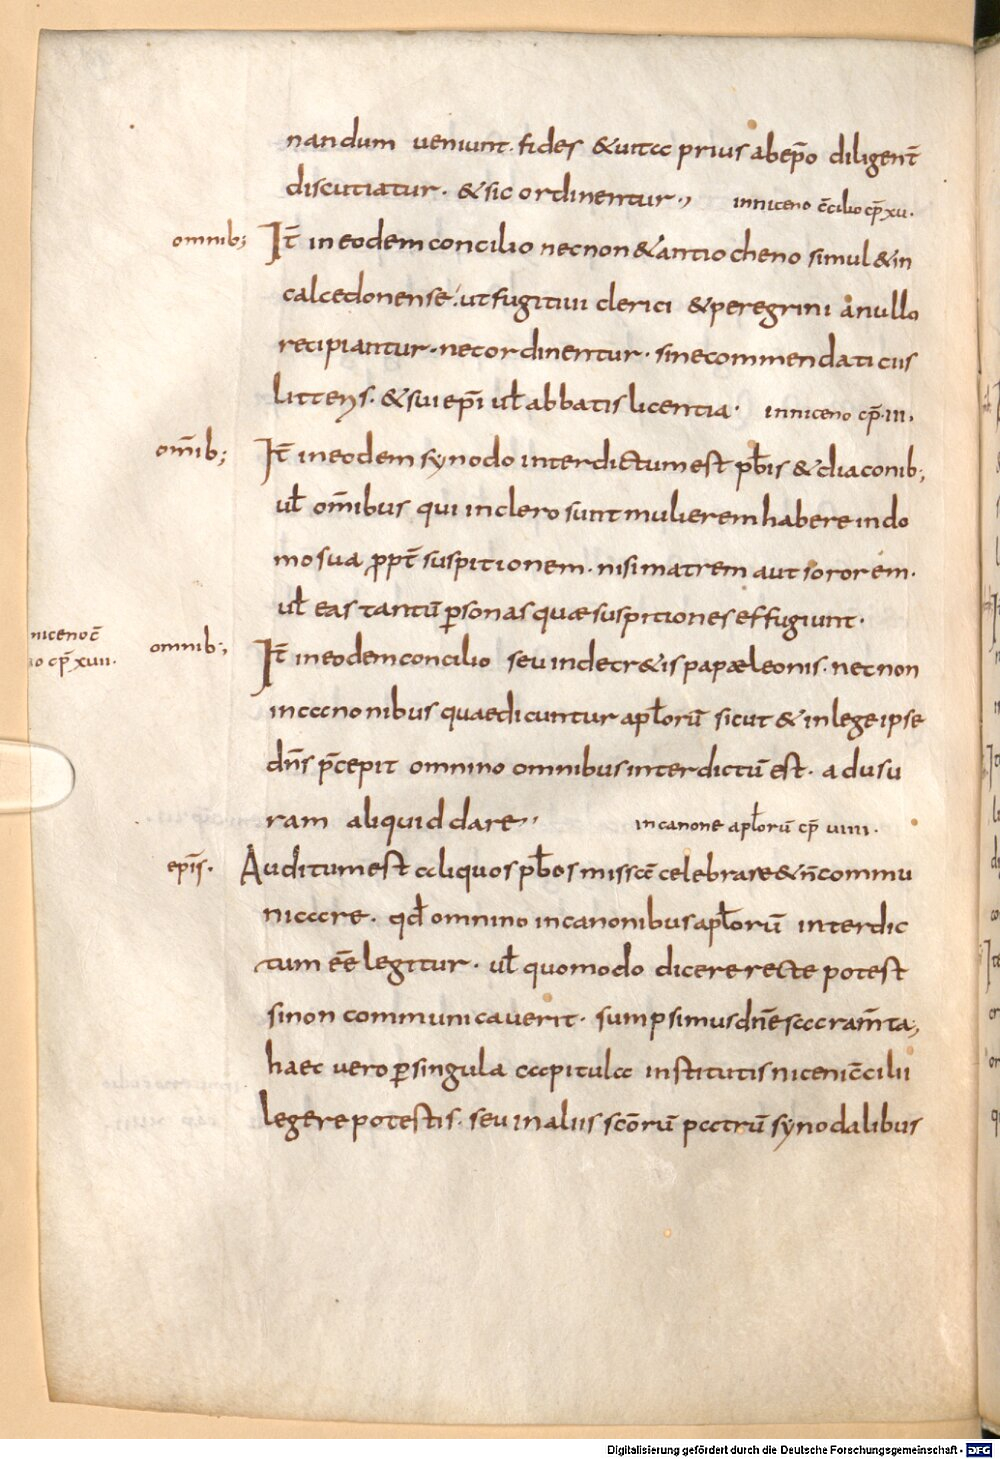 nandum veniunt. fides & uita prius ab ep̄o diligent̄
discutiatur. & sic ordinentur., in niceno c̄cilio cp̄ xu.
omnib; It̄ in eodem concilio necnon & antiocheno simul & in
calcedonense. ut fugitiui clerici & peregrini a nullo
recipiantur. nec ordinentur. sine commendaticiis
litteris. & sui ep̄i ul̄ abbatis licentia. in niceno cp̄. III.
om̄ib; It̄ in eodem synodo interdictum est pb̄is & diaconib;
ul̄ om̄ibus qui in clero sunt mulierem habere in do
mo sua ꝓpt̄ suspitionem. nisi matrem aut sororem.
ul̄ eas tantū ꝑsonas quæ suspitiones effugiunt.
niceno c̄
io cp̄ xuii.
omnib; It̄ in eodem concilio seu in decr&is papæ leonis. necnon
in canonibus quae dicuntur apl̄orū sicut & in lege ipse
dn̄s p̄cepit omnino omnibus interdictū est. ad usu
ram aliquid dare,, in canone apl̄orū cp̄ uiiii.
ep̄is. Auditum est aliquos pb̄os missā celebrare & n̄ commu
nicare. qd̄ omnino in canonibus apl̄orū interdic
tum ēē legitur. ul̄ quomodo dicere recte potest
si non communicauerit. sumpsimus dn̄e sacram̄ta,
haec uero ꝑ singula capitula institutis niceni c̄cilii
legere potestis. seu in aliis scōrū patrū synodalibus
Digitalisierung gefördert durch die Deutsche Forschungsgemeinschaft - DFG